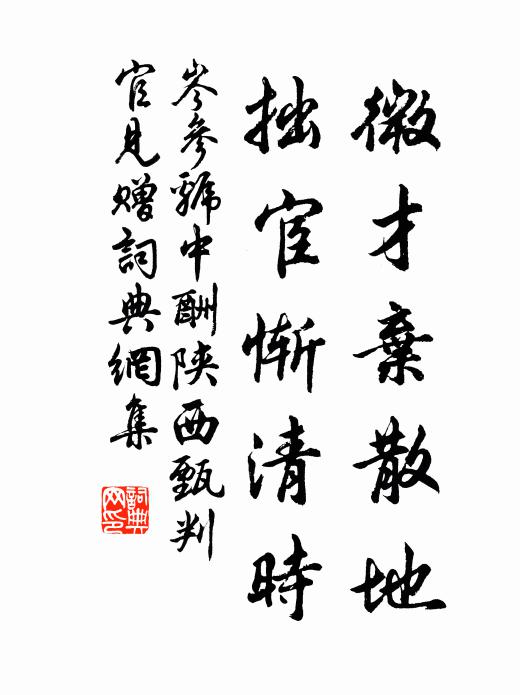 微才棄散地
拙宦慚清時
岑參號中酬陝西甄判
官見贈詞典網集
詞典
网印